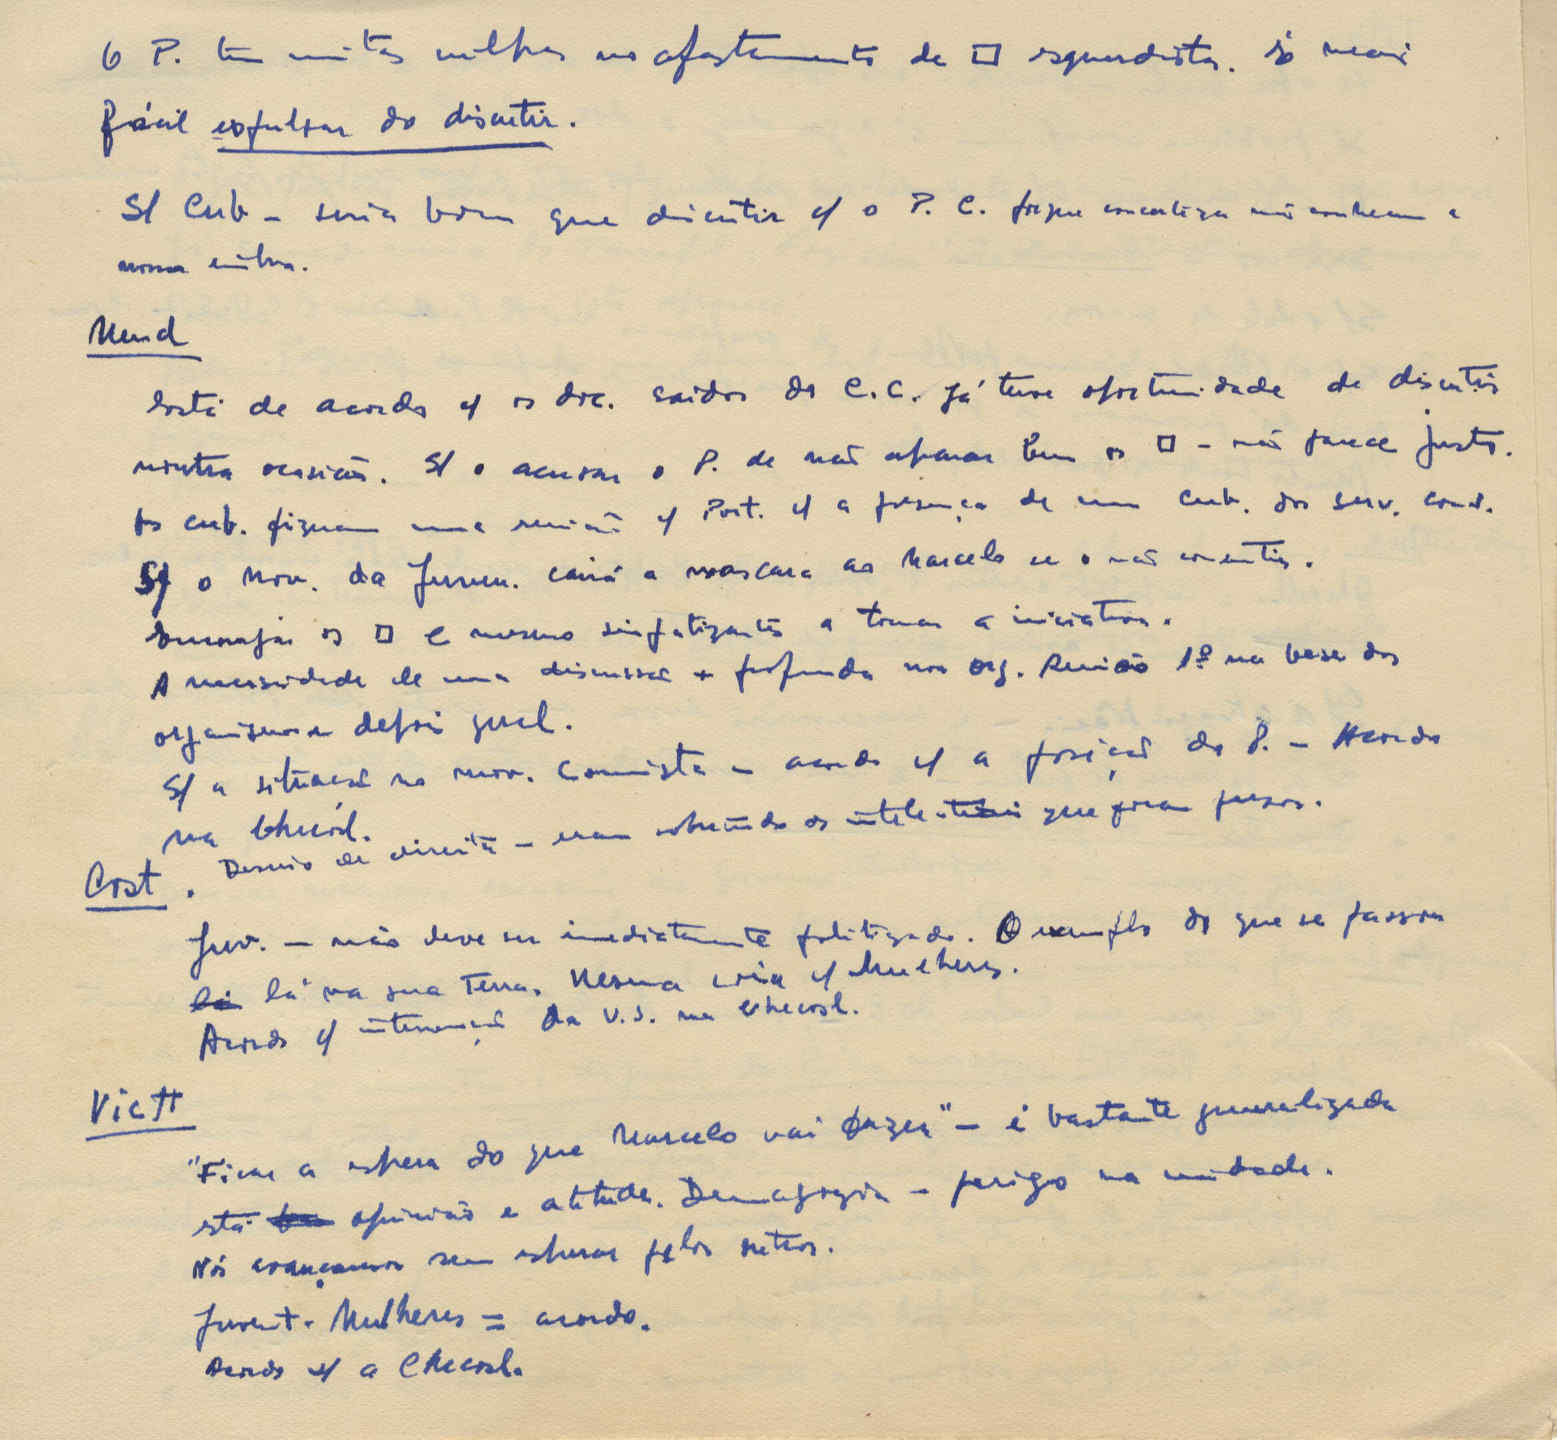 O P. tem muitas culpas no afastamento de □ esquerdistas. É mais
fácil expulsar do discutir.
S/ Cub - seria bom que discutir c/ o P. C. porque não conhecem a
nossa
Mend
Está de acordo c/ os doc. saidos do C.C. Já teve oportunidade de discutir
noutra ocasião. S/ o acusar o P. de não apoiar bem os □ - não parece justo.
Os cub. fizeram uma reunião c/ Port. c/ a presença de um cub. dos serv.
S/ o mov. da Juven. cairá a mascara ao Marcelo se o não consentir.
Encorajar os □ e mesmo simpatizantes a tomar a iniciativa.
A necessidade de uma discussão + profunda nos org. Reunião 1º na base dos
organismos e depois geral.
S/ a situação no mov. Comunista - acordo c/ a posição do P. - Acordo
na Checosl.
Cost. Desvio de direita - eram sobretudo os intelectuais que foram presos.
Juv. - não deve ser imediatamente politizado. O exemplo do que se passou
lá na sua terra. Mesma coisa c/ Mulheres.
Acordo c/ intervenção da U.S. na Checosl.
Vict
"Ficar a espera do que Marcelo vai fazer" - é bastante generalizada
está opinião e atitude. Demagogia - perigo na unidade.
Nós avançamos sem esperar pelos outros.
Juvent. Mulheres = acordo.
Acordo c/ a Checosl.